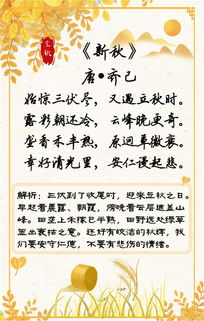 立秋
《新秋》
唐•齐己
始惊三伏尽，又遇立秋时。
露彩朝还冷，云峰晚更奇。
垄香禾半熟，原迥草微衰。
幸好清光里，安仁谩起悲。
解析：三伏到了收尾时，迎来立秋之日。
早起看晨露、朝霞，傍晚看云层遮盖山
峰。田垄上禾稼已半熟，田野远处绿草
呈出衰枯之意。还好有皎洁的秋辉，我
们要安守仁德，不要有悲伤的情绪。